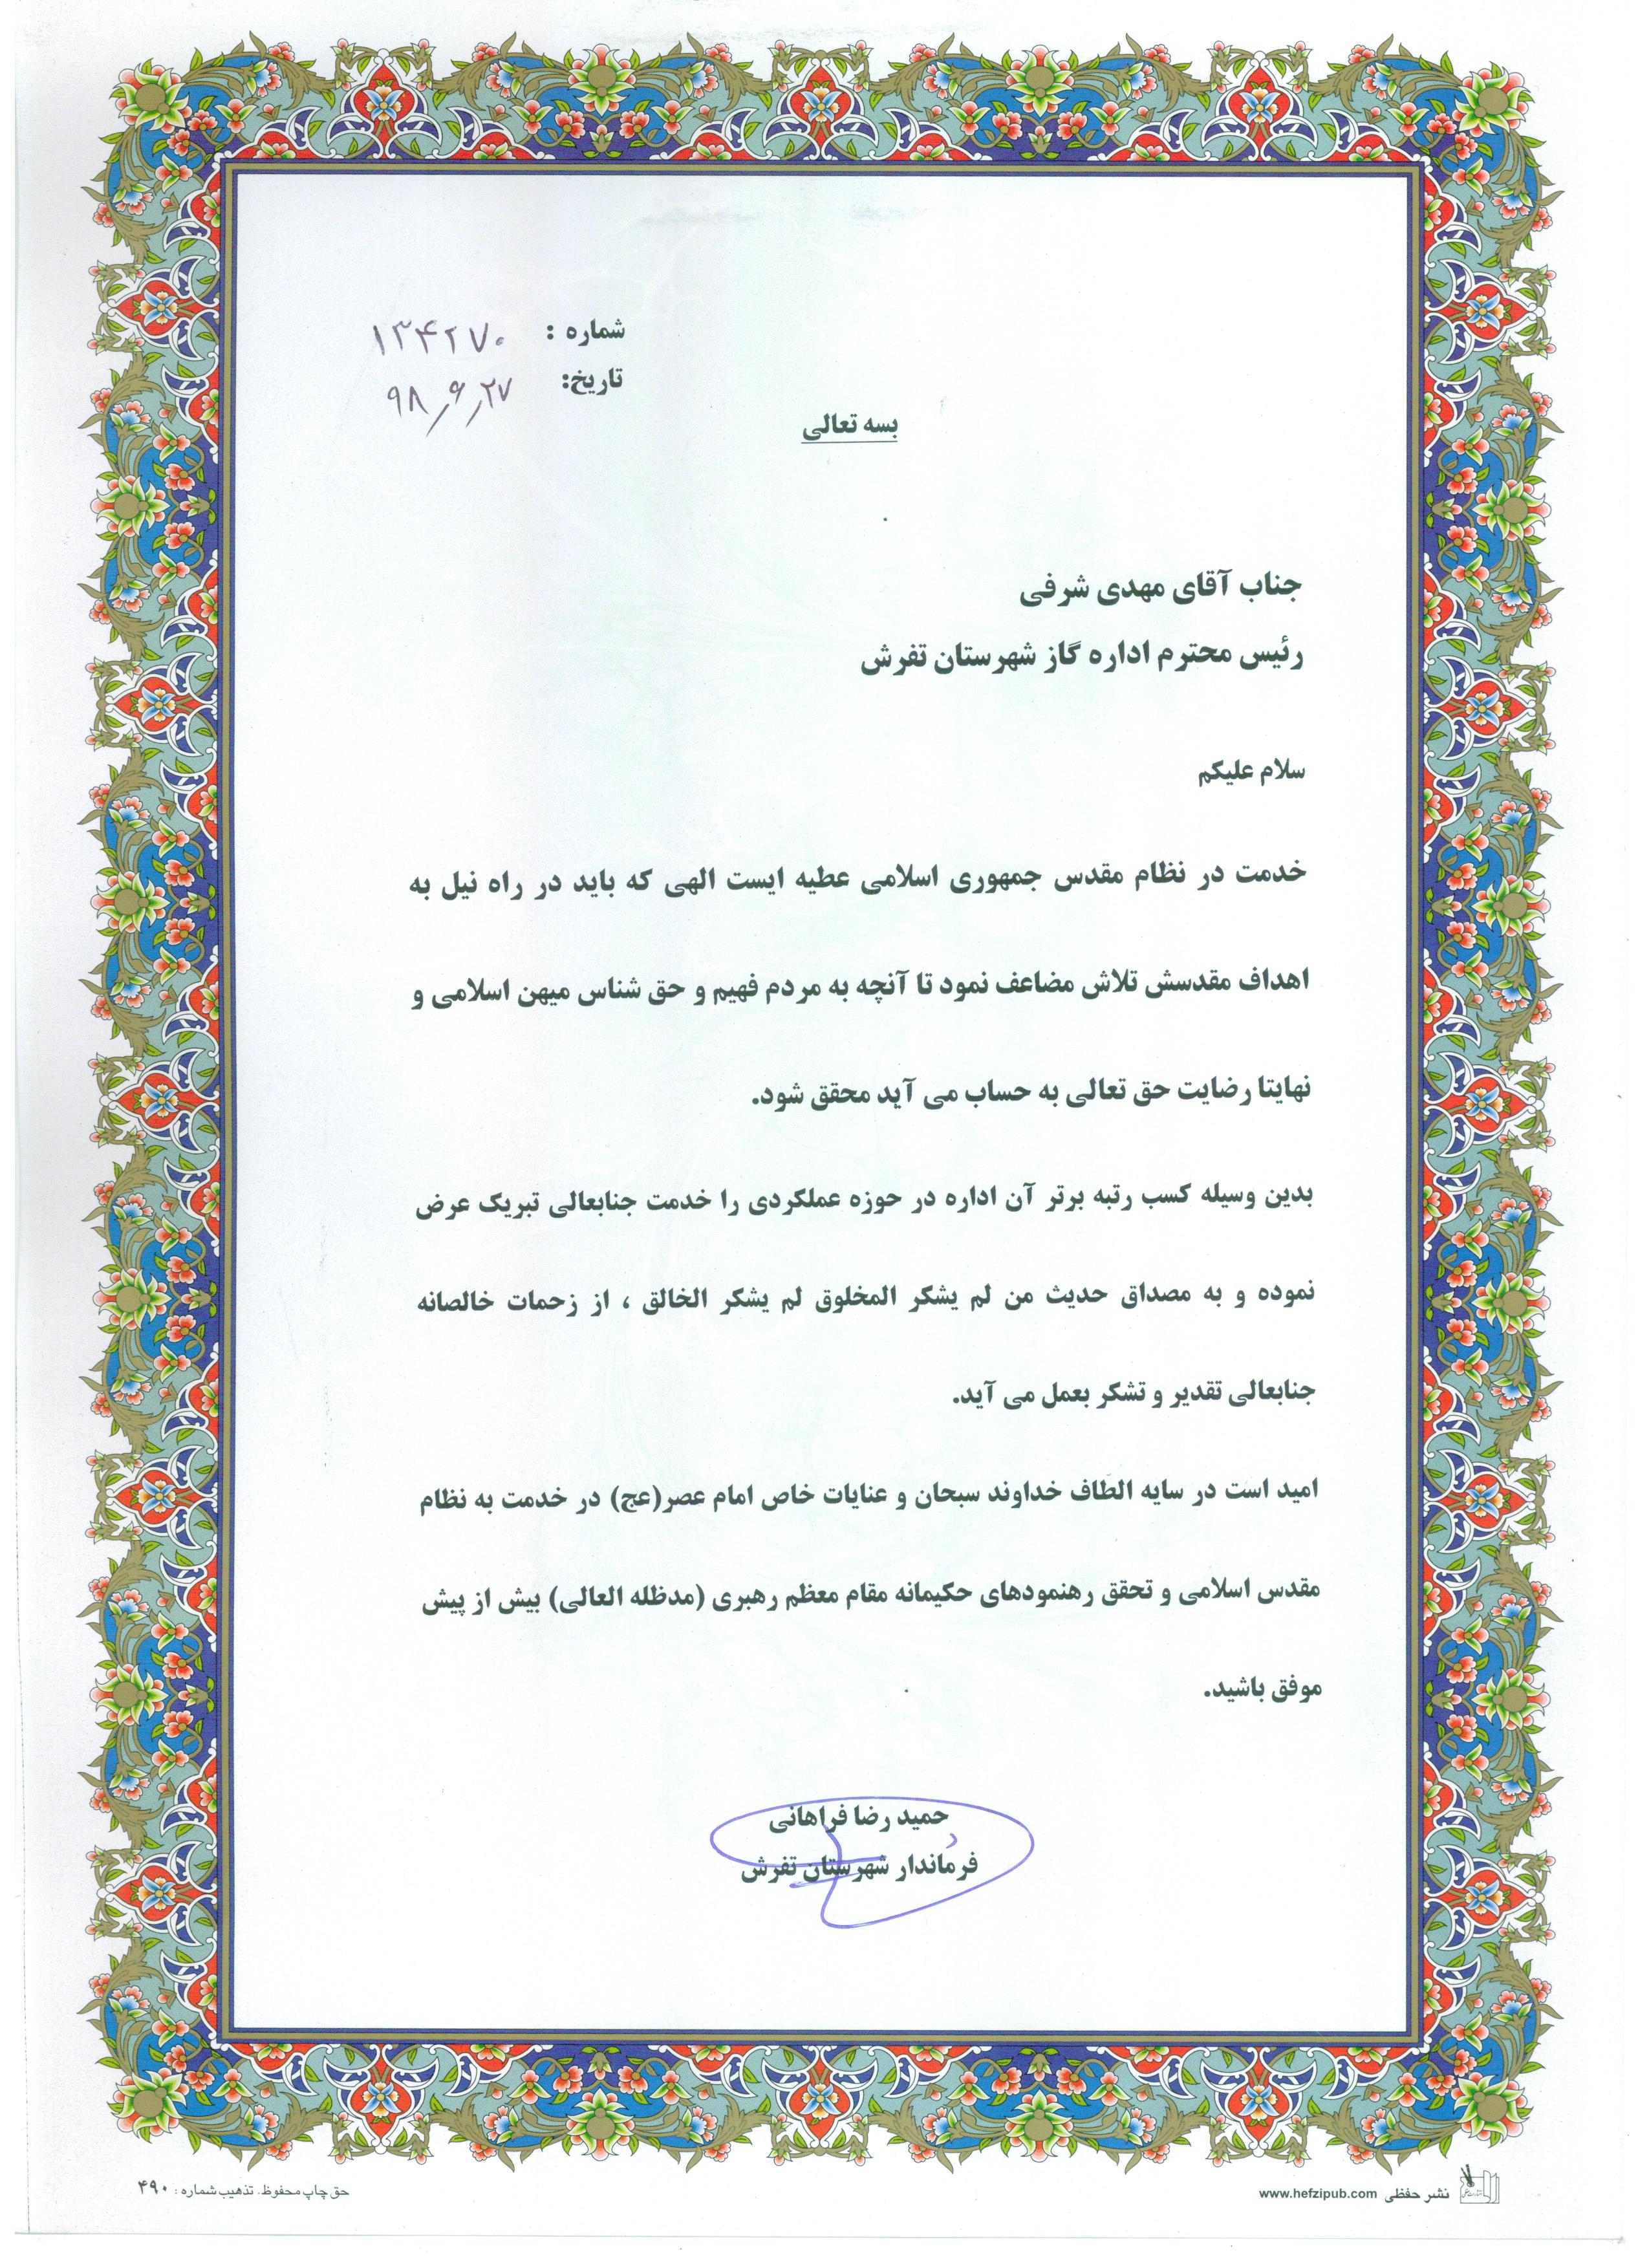 شماره : ۱۳۴۲۷۰
تاریخ: ۹۸/۶/۲۷
بسه تعالی
جناب آقای مهدی شرفی
رئیس محترم اداره گاز شهرستان تفرش
سلام علیکم
خدمت در نظام مقدس جمهوری اسلامی عطیه ایست الهی که باید در راه نیل به
اهداف مقدسش تلاش مضاعف نمود تا آنچه به مردم فهیم و حق شناس میهن اسلامی و
نهایتا رضایت حق تعالی به حساب می آید محقق شود.
بدین وسیله کسب رتبه برتر آن اداره در حوزه عملکردی را خدمت جنابعالی تبریک عرض
نموده و به مصداق حدیث من لم یشکر المخلوق لم یشکر الخالق ، از زحمات خالصانه
جنابعالی تقدیر و تشکر بعمل می آید.
امید است در سایه الطاف خداوند سبحان و عنایات خاص امام عصر(عج) در خدمت به نظام
مقدس اسلامی و تحقق رهنمودهای حکیمانه مقام معظم رهبری (مدظله العالی) بیش از پیش
موفق باشید.
حمید رضا فراهانی
فرماندار شهرستان تفرش
نشر حفظی www.hefzipub.com
حق چاپ محفوظ. تذهیب شماره : ۴۹۰